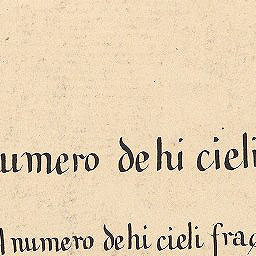 numero dehi cieli
numero dehi cieli frag